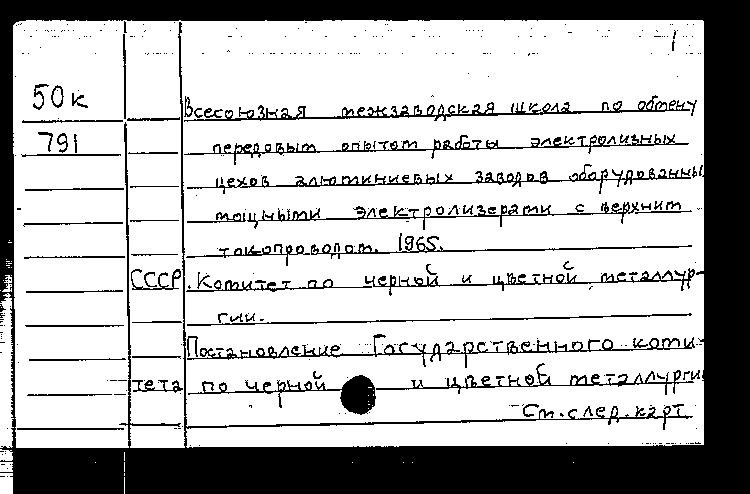 1
50к
Всесоюзная межзаводская школа по обмену
791
передовым опытом работы электролизных
цехов алюминиевых заводов оборудованны
мощными электролизерами с верхним
токопроводом. 1965.
СССР. Комитет по черной и цветной металлур-
гии.
Постановление Государственного коми-
тета по черной и цветной металлургии
См. след. карт